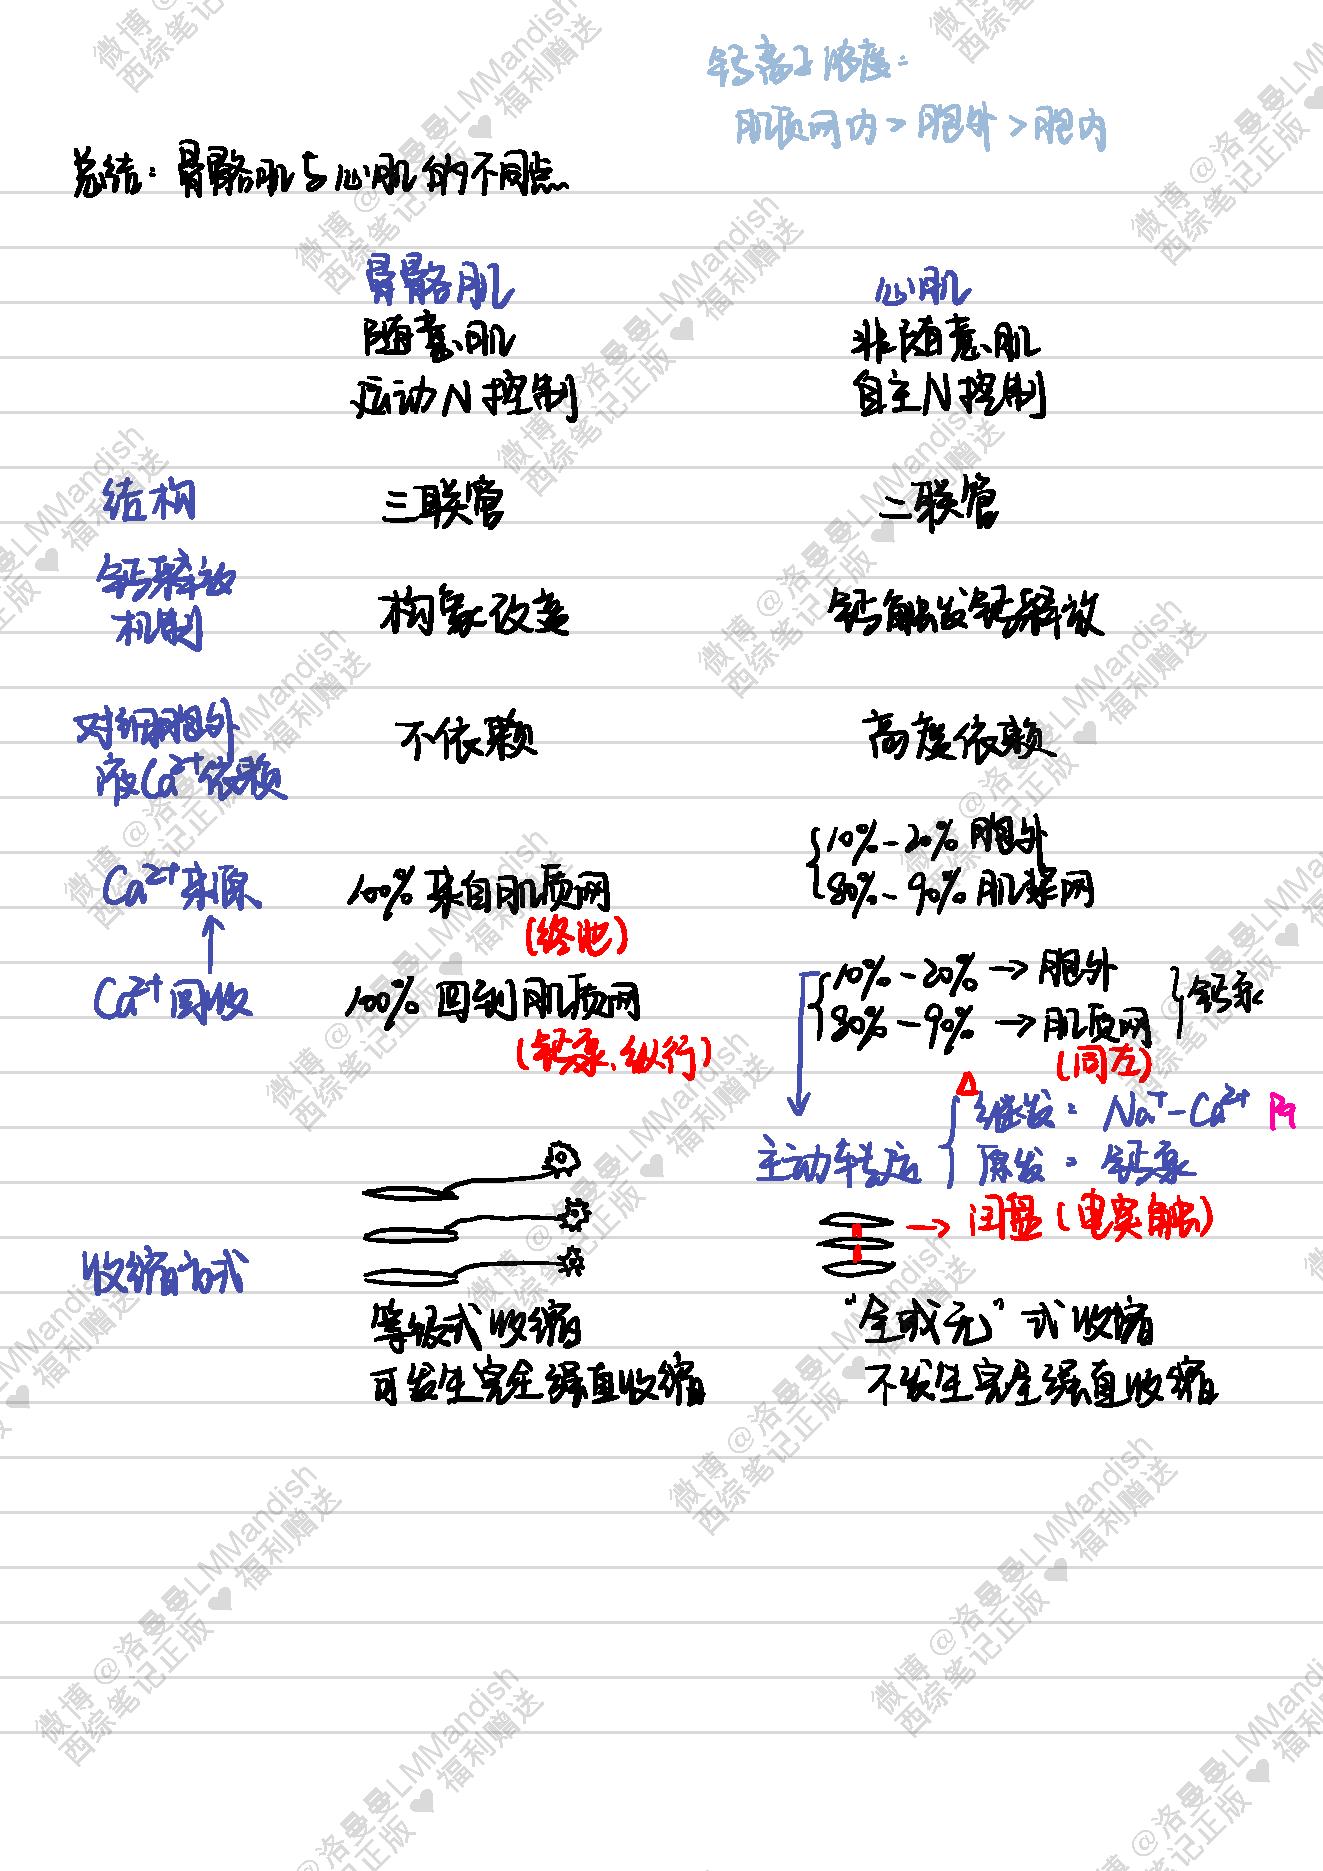 钙离子浓度：
肌质网内＞胞外＞胞内
总结：骨骼肌与心肌的不同点
骨骼肌 心肌
随意肌 非随意肌
运动N控制 自主N控制
结构 三联管 二联管
钙释放
机制 构象改变 钙触发钙释放
对细胞外
液Ca²⁺依赖 不依赖 高度依赖
Ca²⁺来源 100%来自肌质网 {10%-20% 胞外
80%-90% 肌浆网
(终池)
Ca²⁺回收 100%回到肌质网 {10%-20%→胞外
80%-90%→肌质网 }钙泵
(钙泵、纵行) (同左)
△
主动转运 {继发：Na⁺-Ca²⁺
原发：钙泵
→闰盘(电突触)
收缩方式
等级式收缩 “全或无”式收缩
可发生完全强直收缩 不发生完全强直收缩
微博@洛曼曼LMMandish
西综笔记正版♥福利赠送